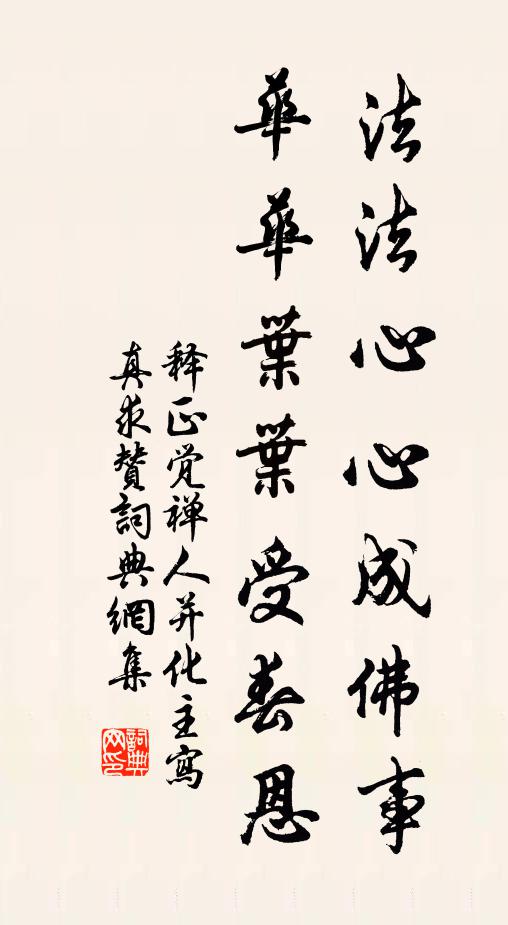 法法心心成佛事
華華葉葉受春恩
释正觉禅人并化主寫
真求贊詞典網集
詞典网印